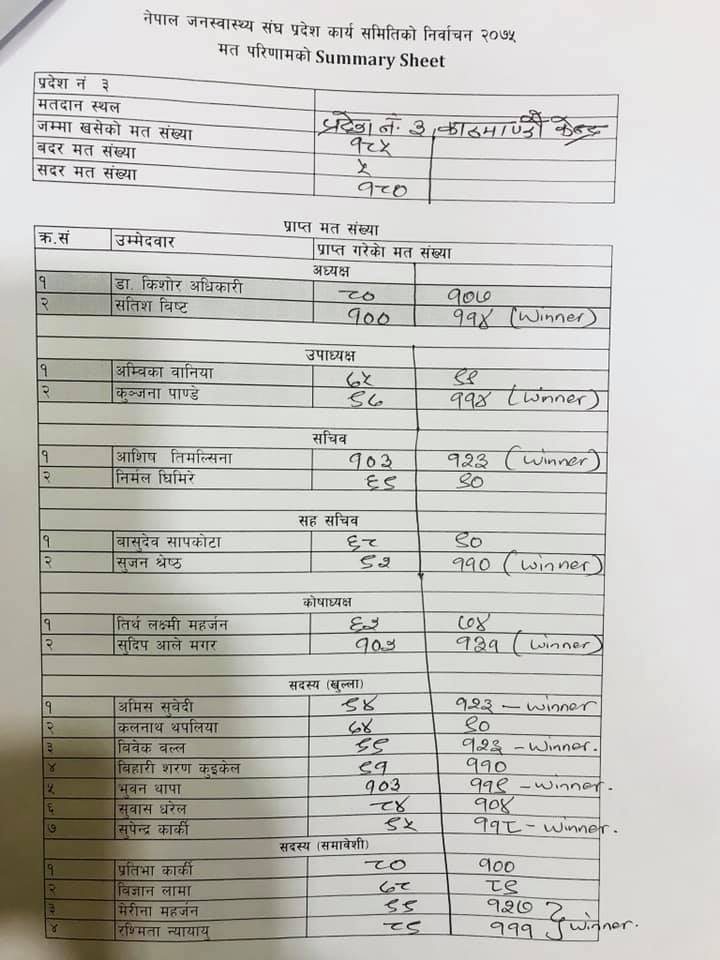 नेपाल जनस्वास्थ्य संघ प्रदेश कार्य समितिको निर्वाचन २०७५
मत परिणामको Summary Sheet
प्रदेश नं ३
मतदान स्थल प्रदेश नं. ३ काठमाण्डौ केन्द्र
जम्मा खसेको मत संख्या १८५
बदर मत संख्या ५
सदर मत संख्या १८०
प्राप्त मत संख्या
क्र.सं उम्मेदवार प्राप्त गरेको मत संख्या
अध्यक्ष
१ डा. किशोर अधिकारी ८० १०७
२ सतिश विष्ट १०० ११४ (Winner)
उपाध्यक्ष
१ अम्विका वानिया ७५ ९९
२ कुञ्जना पाण्डे ९७ ११४ (Winner)
सचिव
१ आशिष तिमल्सिना १०३ १२३ (Winner)
२ निर्मल घिमिरे ६९ ९०
सह सचिव
१ बासुदेव सापकोटा ६८ ९०
२ सुजन श्रेष्ठ ९२ ११० (Winner)
कोषाध्यक्ष
१ तिर्थ लक्ष्मी महर्जन ६२ ७४
२ सुदिप आले मगर १०२ १३१ (Winner)
सदस्य (खुल्ला)
१ अमिस सुवेदी ९४ १२३ – Winner
२ कलनाथ थपलिया ७४ ९०
३ विवेक वल्ल ९९ १२३ – Winner.
४ बिहारी शरण कुइकेल ९१ ११०
५ भुवन थापा १०३ ११९ – Winner.
६ सुवास धरेल ८४ १०४
७ सुपेन्द्र कार्की ९५ ११८ – Winner.
सदस्य (समावेशी)
१ प्रतिभा कार्की ८० १००
२ विज्ञान लामा ७८ ८९
३ मेरीना महर्जन ९९ १२७
४ रश्मिता न्यायायु ८९ १११ } Winner.